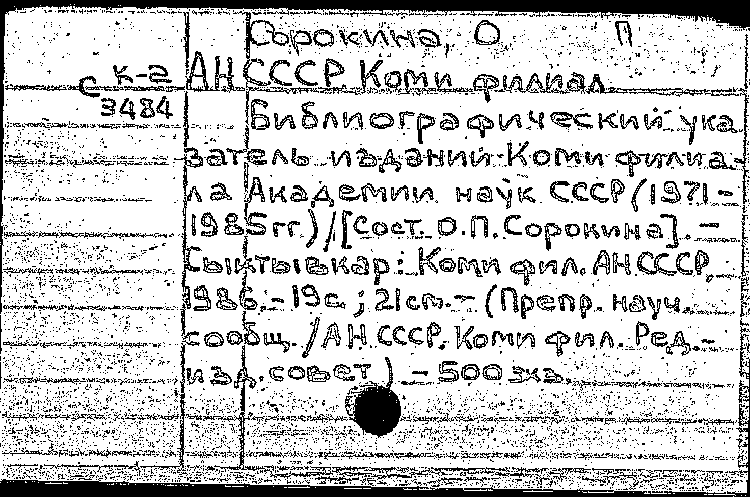 Сорокина, О П
к-а
с 3484
АН СССР. Коми филиал.
Библиографический ука
затель изданий Коми филиа-
ла Академии наук СССР (1971-
1985гг.)/[Сост. О.П.Сорокина]. –
Сыктывкар: Коми фил. АН СССР,
1986. – 19с.; 21см. – (Препр. науч.
сообщ. /АН СССР. Коми фил. Ред.-
изд. совет). – 500 экз.